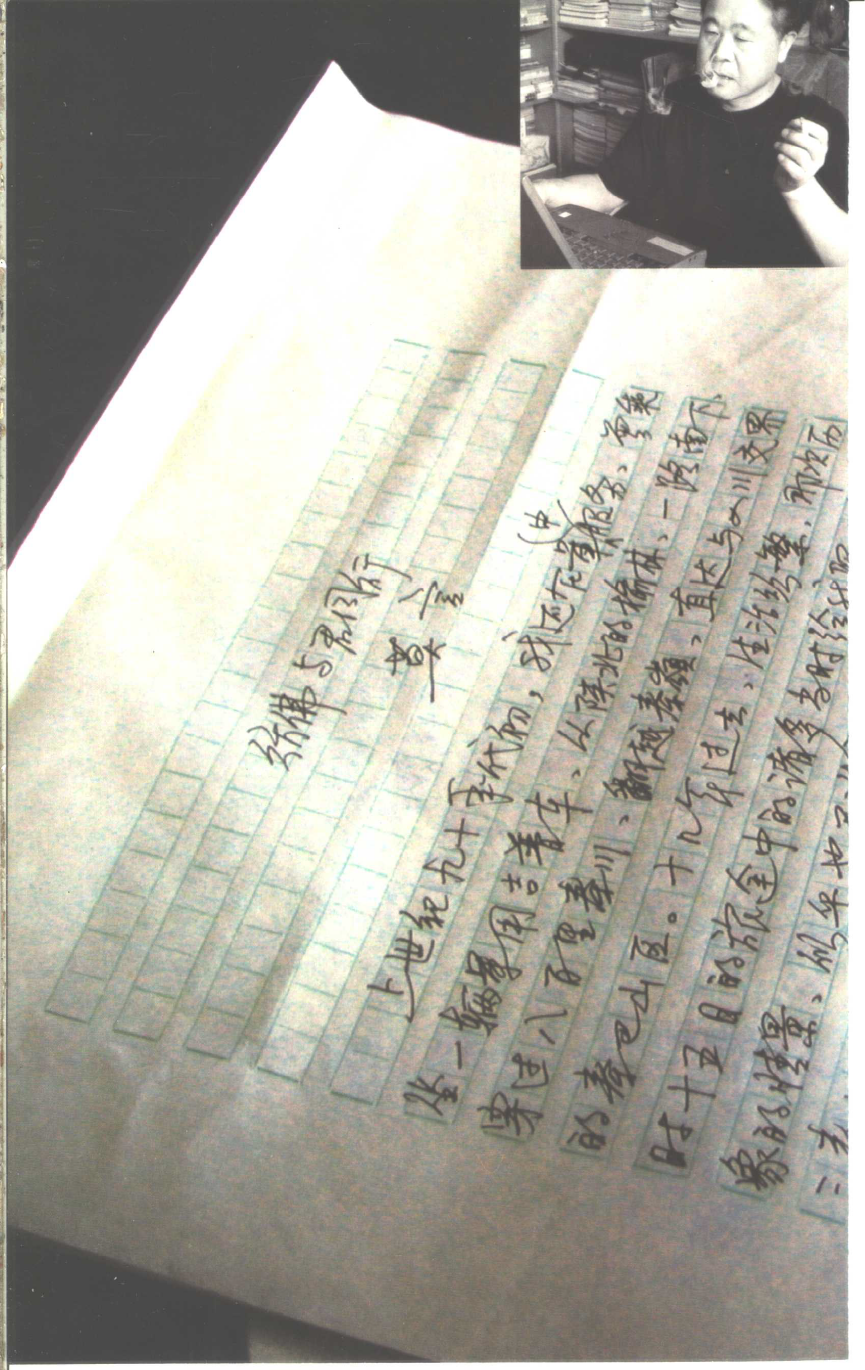 彷佛与君同行
莫言
上世纪九十年代初，我还在军(中)服务，曾乘
坐一辆军用吉普车，从陕北的榆林，一路南下，
穿过八百里秦川，翻越秦岭，直达与四川交界
的秦巴山区。十几年过去，生活纷繁，那次历
时十五日的旅途中的诸多当时给我
象的情景，似乎也